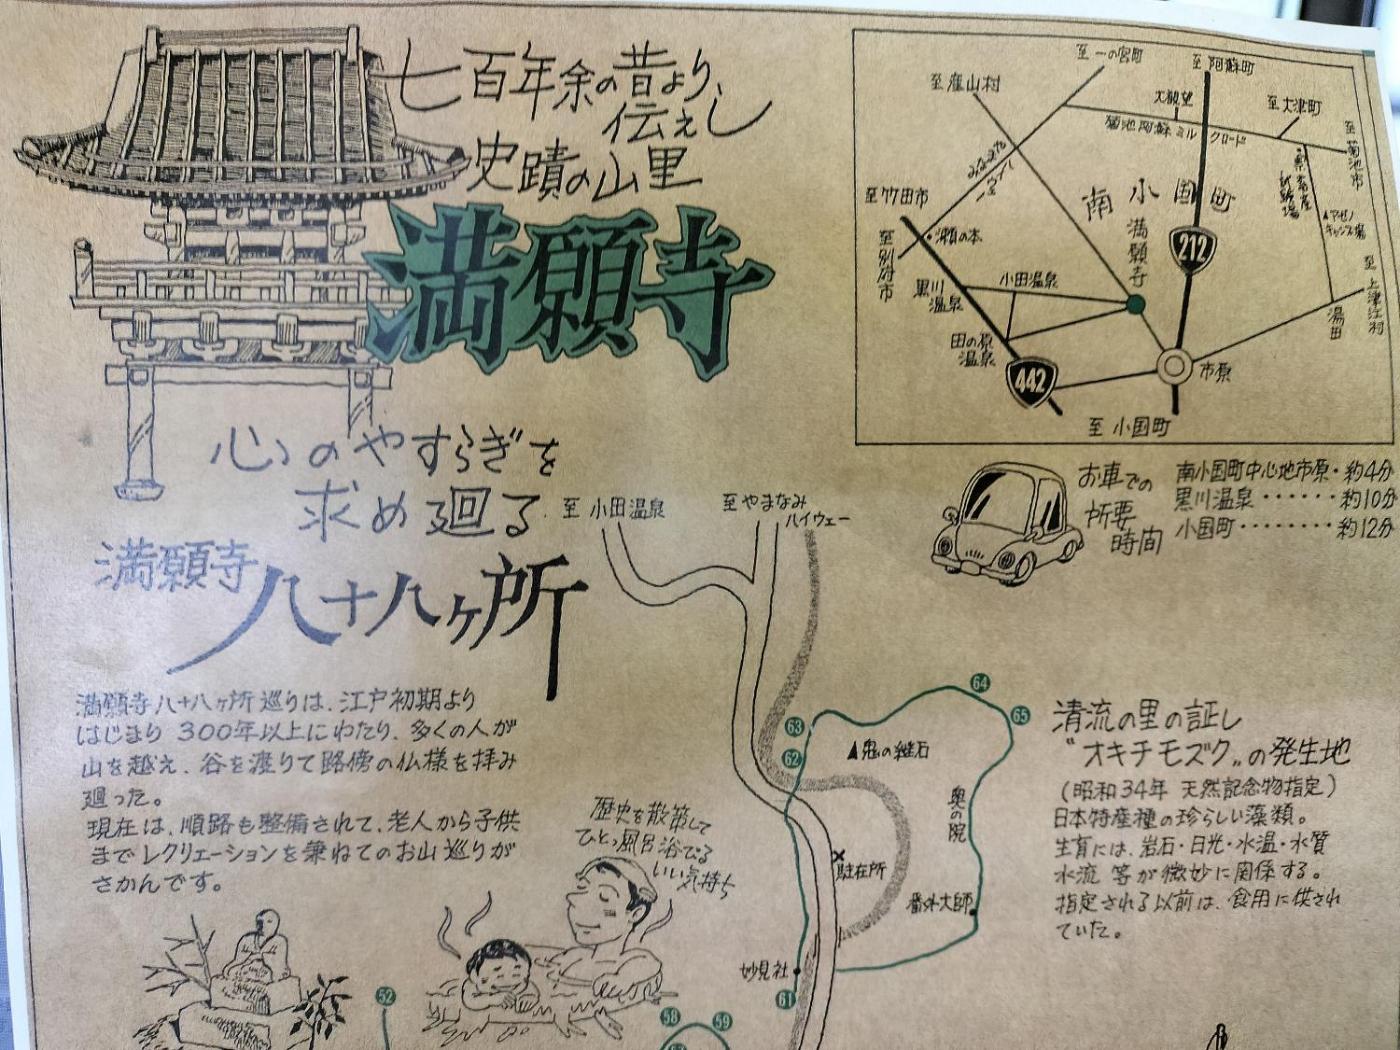 七百年余の昔より、
伝えし
史蹟の山里
満願寺
心のやすらぎを
求め廻る
満願寺
八十八ヶ所
満願寺八十八ヶ所巡りは、江戸初期より
はじまり 300年以上にわたり、多くの人が
山を越え、谷を渡りて路傍の仏様を拝み
廻った。
現在は、順路も整備されて、老人から子供
までレクリェーションを兼ねてのお山巡りが
さかんです。
歴史を散策して
ひとっ風呂浴びる
いい気持ち
至 一の宮町
至 阿蘇町
至 産山村
大観望
至 大津町
菊池阿蘇ミルクロード
至 菊池市
至 竹田市
南小国町
満願寺
212
瀬の本
至 別府市
黒川温泉
小田温泉
田の原温泉
442
市原
湯田
至 上津江村
至 小国町
お車での
所要
時間
南小国町中心地市原・約4分
黒川温泉・・・・・・約10分
小国町・・・・・・・・約12分
至 小田温泉
至やまなみ
ハイウェー
64
65
63
62
鬼の継石
奥の院
駐在所
番外大師
妙見社
61
清流の里の証し
"オキチモズク"の発生地
(昭和34年 天然記念物指定)
日本特産種の珍らしい藻類。
生育には、岩石・日光・水温・水質
水流 等が微妙に関係する。
指定される以前は、食用に供され
ていた。
52
58
59